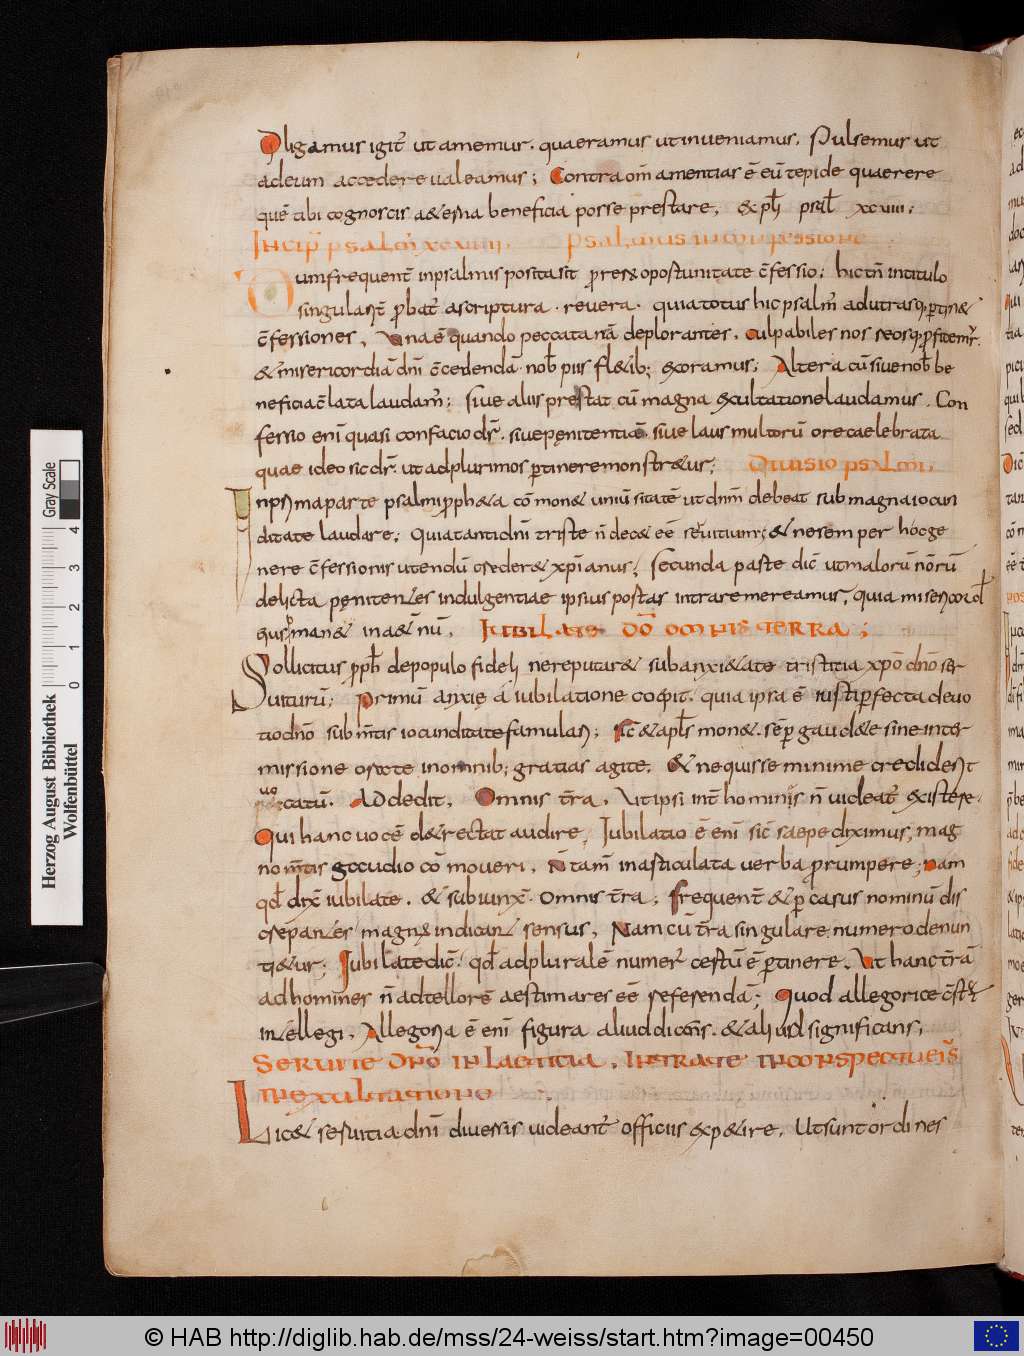 Diligamus igit̄ ut amemur. quaeramus ut inueniamus. Pulsemus ut
adeum accedere ualeamus; Contra om̄ amentias ē eū tepide quaerere
quē tibi cognoscis a&erna beneficia posse prestare.
Incip̄ psalm̄ xcviiii. Psalmus in confessione
Cum frequent̄ in psalmis posita sit
singularit̄ p̄bat̄ ascriptura. reuera. quia totus hic psalm̄ ad utrasq; p̄tin&
c̄fessiones. Una ē quando peccata nr̄a deplorantes. culpabiles nos
& misericordiā dn̄i c̄cedendā nob̄ piis fl&ib; exoramus; Altera cū siue nob̄ be
neficia c̄lata laudam̄; siue aliis prestat cū magna exultatione laudamus. Con
fessio enī quasi confacio dr̄. siue penitentiā. siue laus multorū ore caelebrata
quae ideo sic dr̄. ut ad plurimos p̄tinere monstr&ur; Diuisio psalmi.
In prima parte psalmi proph&a cōmon& uniuersitatē ut dn̄m debeat sub magna iocun
ditate laudare; Quia tanti dn̄i triste n̄ dec& eē seruitium; & ne semper hoc ge
nere c̄fessionis utendū creder& xp̄ianus; Secunda parte dic̄ ut malorū nr̄orū
delicta penitentes indulgentiae ipsius portas intrare mereamur, quia misericord
man& in a&ernū. Iubilate dō omnis terra;
Sollicitus pph̄ de populo fideli ne reputar& sub anxi&ate tristitia xp̄o dn̄o ser
uiturū; Primū anxie a iubilatione coepit. quia ipsa ē iusti perfecta deuo
tio dn̄o sub mentis iocunditate famulari; Sic̄ & apl̄s mon&. semp̄ gaud&e sine inter
missione orate in omnib; gratias agite. & ne quis se minime crediderit
uocatū. Addedit. Omnis t̄ra. Ut ipsi int̄ hominis n̄ uideat̄ existere.
Qui hanc uocē detrectat audire, Iubilatio ē enī sic̄ saepe diximus, mag
no mentis gaudio cōmoueri. N̄ tam̄ in articulata uerba prumpere; nam
qd̄ dix̄ iubilate. & subiunx̄. omnis t̄ra; frequent̄ & p̄ casus nominū dis
crepantes magnus indicant̄ sensus. Nam cū t̄ra singulare numero denun
ti&ur; Iubilate dic̄. qd̄ ad pluralē numer̄ certū ē p̄tinere. Ut hanc t̄rā
ad homines n̄ ad tellorē aestimares eē referendā; Quod allegorice
intellegi. Allegoria ē enī figura aliud dicens. & aliud significans;
Seruite dn̄o in laetitia. Intrate in conspectu eius
in exultatione
Lic& seruitia dn̄i diuersis uideant̄ officiis exp&ire. Ut sunt ordines
Herzog August Bibliothek
Wolfenbüttel
Gray Scale
0 1 2 3 4
© HAB http://diglib.hab.de/mss/24-weiss/start.htm?image=00450